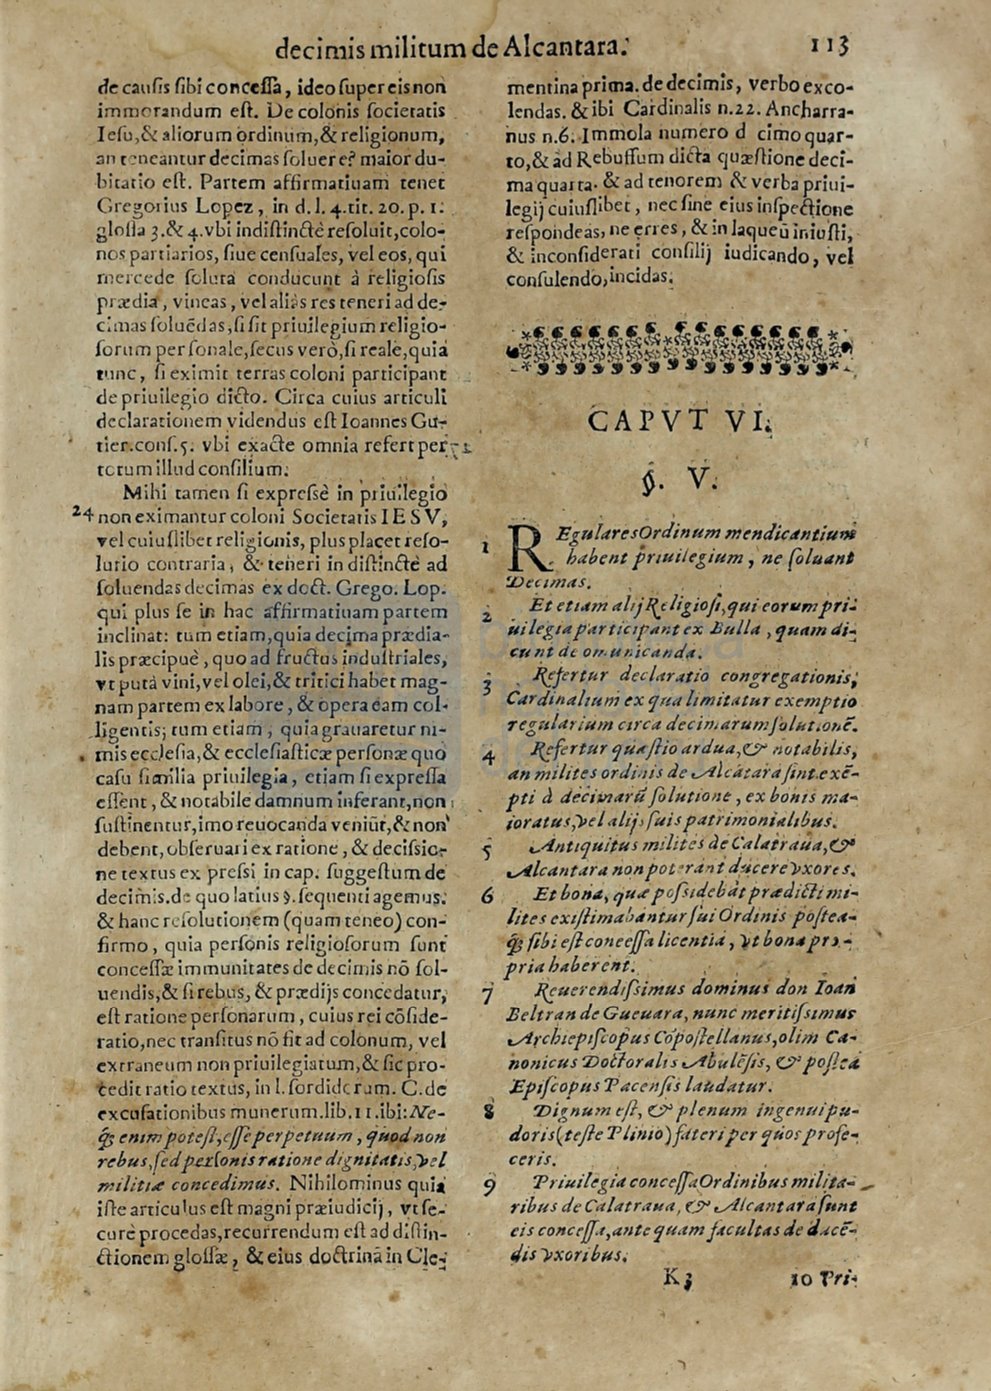 decimis militum de Alcantara. 113
de causis sibi concessa, ideo super eis non
immorandum est. De colonis societatis
Iesu,& aliorum ordinum,& religionum,
an teneantur decimas soluere? maior du-
bitatio est. Partem affirmatiuam tenet
Gregorius Lopez, in d. l. 4. tit. 20. p. 1.
glossa 3.& 4. vbi indistinctè resoluit, colo-
nos partiarios, siue censuales, vel eos, qui
mercede soluta conducunt à religiosis
prædia, vineas, vel alias res teneri ad de-
cimas soluẽdas, si sit priuilegium religio-
sorum personale, secus verò, si reale, quia
tunc, si eximit terras coloni participant
de priuilegio dicto. Circa cuius articuli
declarationem videndus est Ioannes Gu-
tier. cons. 5. vbi exacte omnia refert per
totum illud consilium.
Mihi tamen si expressè in priuilegio
24 non eximantur coloni Societatis IESV,
vel cuiuslibet religionis, plus placet reso-
lutio contraria, & teneri indistinctè ad
soluendas decimas ex doct. Grego. Lop.
qui plus se in hac affirmatiuam partem
inclinat: tum etiam, quia decima prædia-
lis præcipuè, quo ad fructus industriales,
vt putà vini, vel olei,& tritici habet mag-
nam partem ex labore, & opera eam col-
ligentis; tum etiam, quia grauaretur ni-
mis ecclesia,& ecclesiasticæ personæ quo
casu similia priuilegia, etiam si expressa
essent, & notabile damnum inferant, non
sustinentur, imo reuocanda veniũt,& non
debent, obseruari ex ratione, & decisio-
ne textus ex pressi in cap. suggestum de
decimis. de quo latius §. sequenti agemus.
& hanc resolutionem (quam teneo) con-
firmo, quia personis religiosorum sunt
concessæ immunitates de decimis nõ sol-
uendis,& si rebus, & prædijs concedatur,
est ratione personarum, cuius rei cõside-
ratio, nec transitus nõ fit ad colonum, vel
extraneum non priuilegiatum,& sic pro-
cedit ratio textus, in l. sordidorum. C. de
excusationibus munerum. lib. 11. ibi: Ne-
q; enim potest, esse perpetuum, quod non
rebus, sed personis ratione dignitatis, vel
militiæ concedimus. Nihilominus quia
iste articulus est magni præiudicij, vt se-
curè procedas, recurrendum est ad distin-
ctionem glossæ, & eius doctrinã in Cle-
mentina prima. de decimis, verbo exco-
lendas. & ibi Cardinalis n. 22. Ancharra-
nus n. 6. Immola numero d cimo quar-
to,& ad Rebuffum dicta quæstione deci-
ma quarta. & ad tenorem & verba priui-
legij cuiuslibet, nec sine eius inspectione
respondeas, ne erres, & in laqueũ iniusti,
& inconsiderati consilij iudicando, vel
consulendo, incidas.
CAPVT VI.
§. V.
1 REgulares Ordinum mendicantium
habent priuilegium, ne soluant
Decimas.
2 Et etiam alij Religiosi, qui eorum pri-
uilegia participant ex Bulla, quam di-
cunt de omunicanda.
3 Refertur declaratio congregationis,
Cardinalium ex qua limitatur exemptio
regularium circa decimarum solutionẽ.
4 Refertur quæstio ardua,& notabilis,
an milites ordinis de Alcãtara sint exẽ-
pti à decimarũ solutione, ex bonis ma-
ioratus, vel alijs suis patrimonialibus.
5 Antiquitus milites de Calatraua,&
Alcantara non poterant ducere vxores.
6 Et bona, quæ possidebãt prædicti mi-
lites existimabantur sui Ordinis postea-
q; sibi est concessa licentia, vt bona pro-
pria haberent.
7 Reuerendissimus dominus don Ioan
Beltran de Gueuara, nunc meritissimus
Archiepiscopus Cõpostellanus, olim Ca-
nonicus Doctoralis Abulẽsis, & postea
Episcopus Pacensis laudatur.
8 Dignum est, & plenum ingenui pu-
doris (teste Plinio) fateri per quos profe-
ceris.
9 Priuilegia concessa Ordinibus milita-
ribus de Calatraua, & Alcantara sunt
eis concessa, ante quam facultas de ducẽ-
dis vxoribus.
K 3 10 Pri-